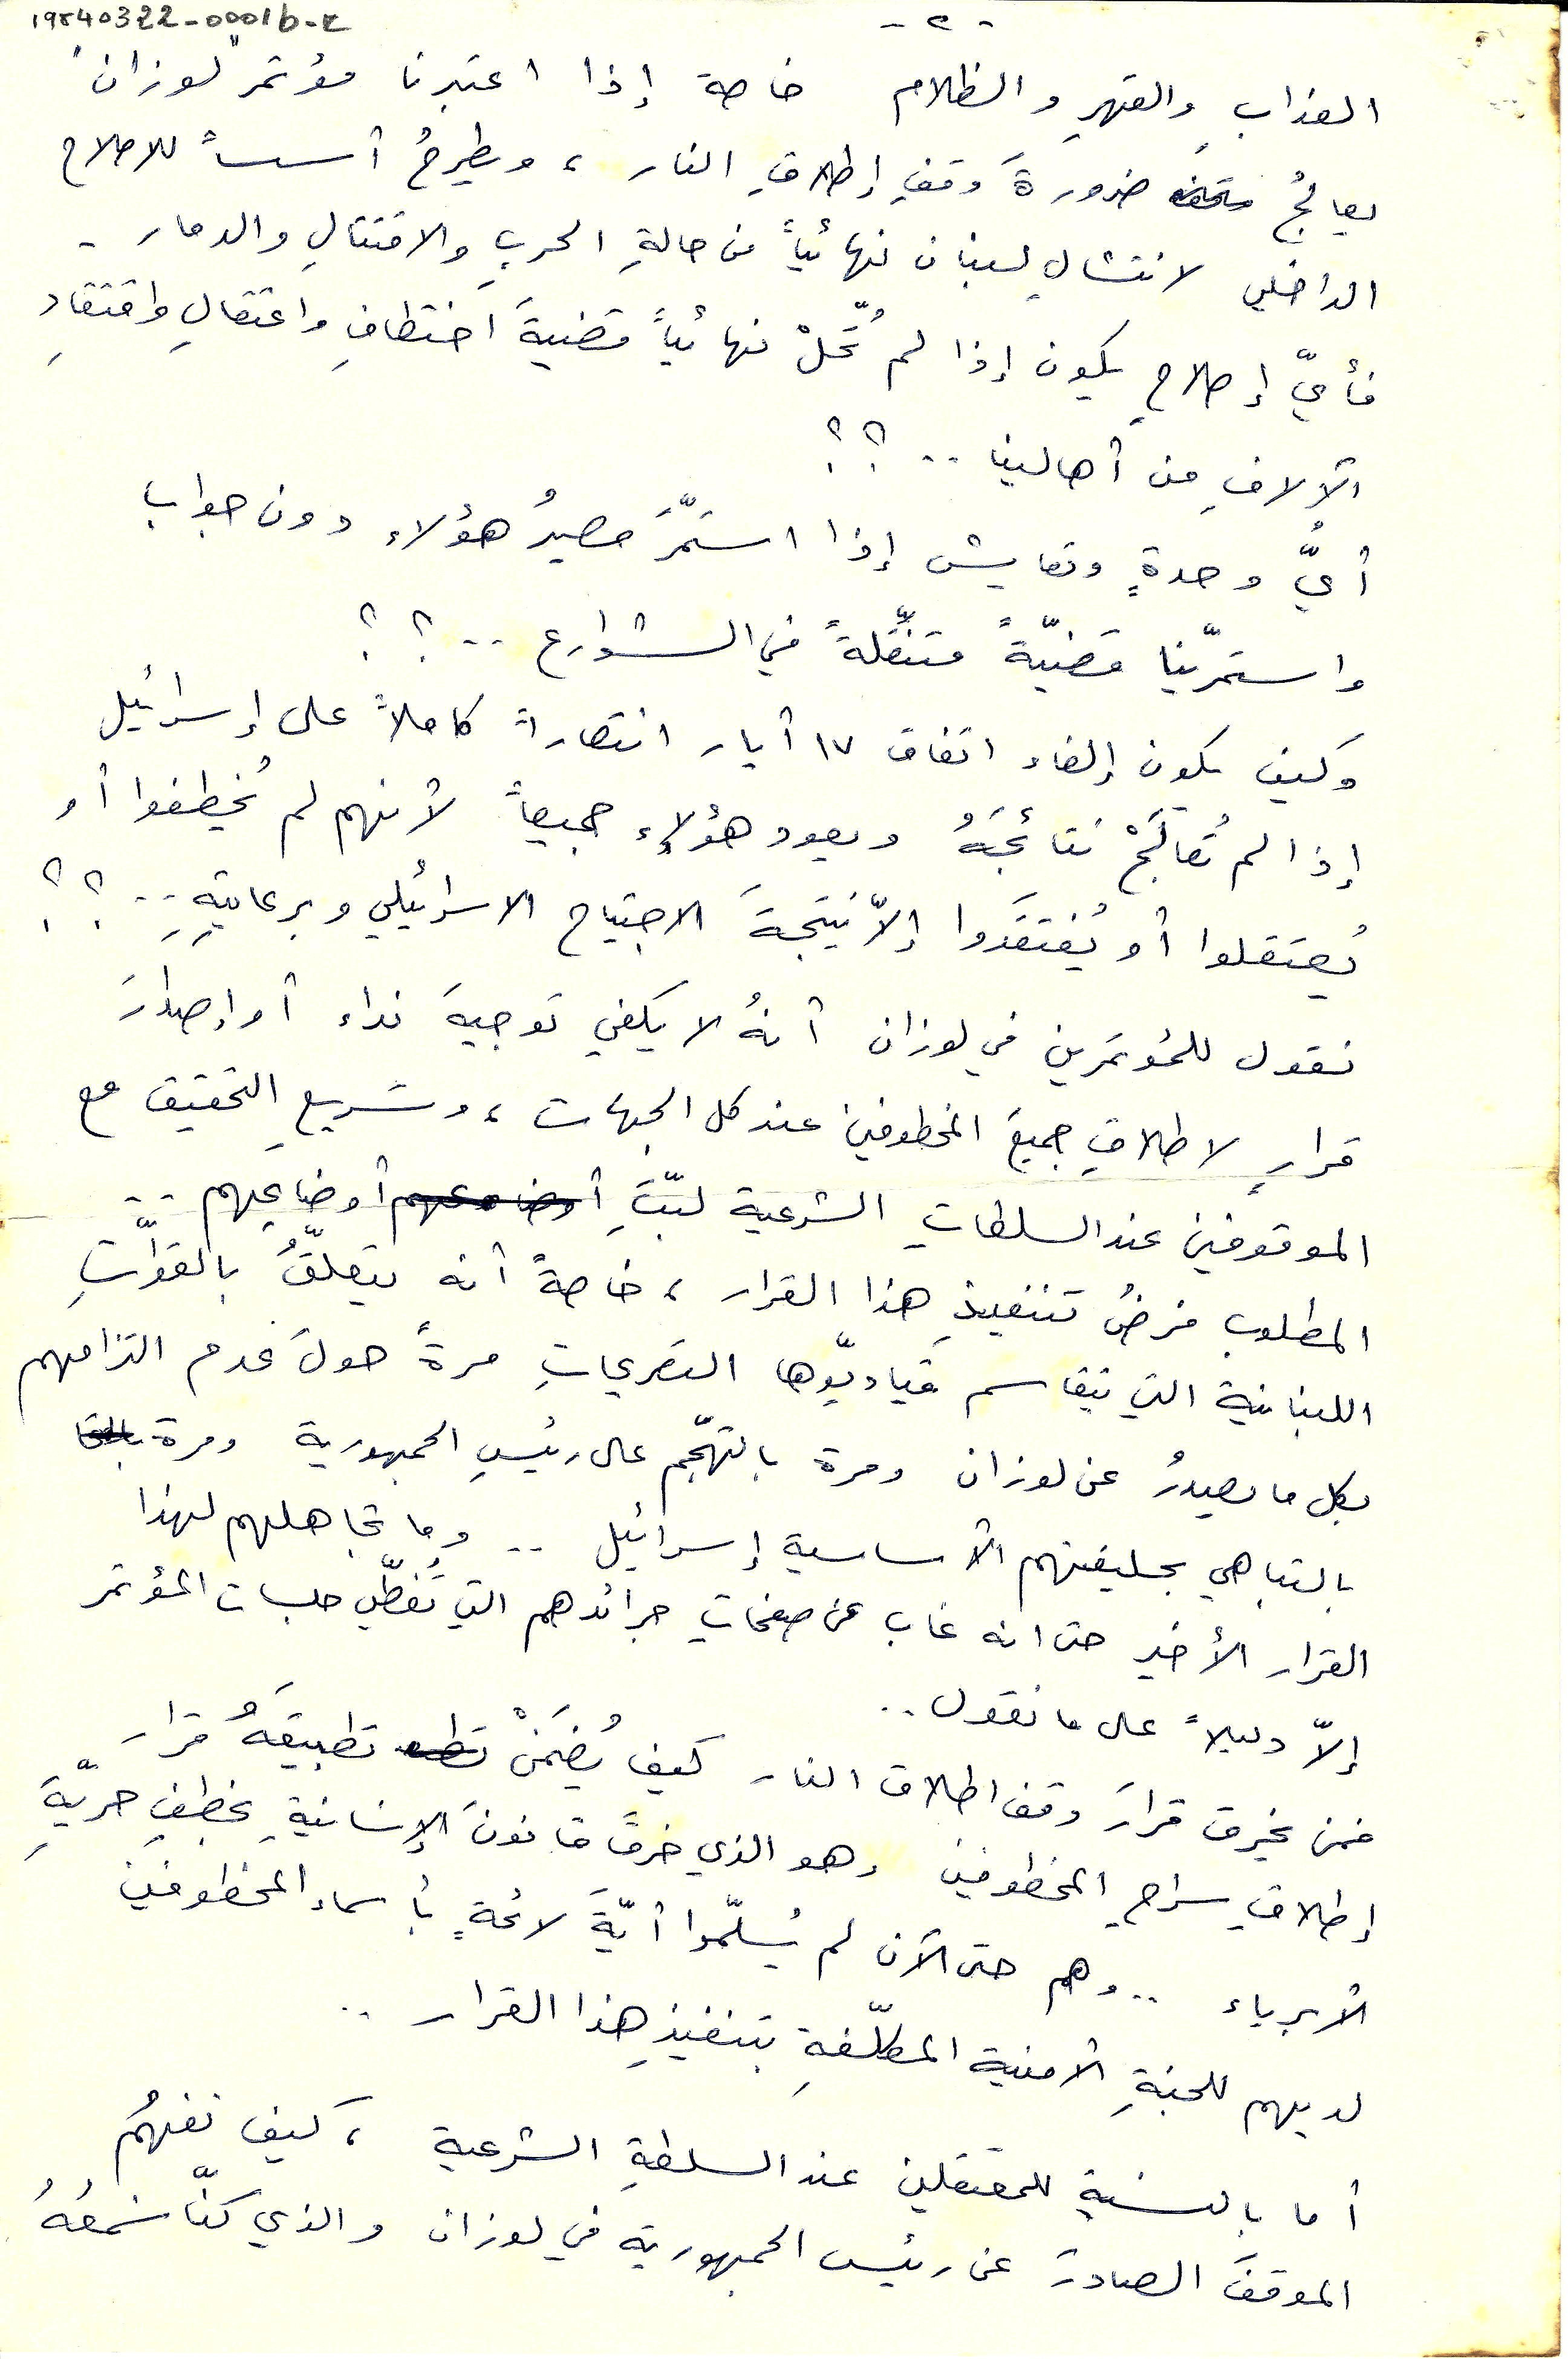 19840322-0001b-2
- ٢ -
العذابِ والقهرِ والظلام خاصة إذا اعتبرنا مؤتمر "لوزان"
يعالجُ ضرورةَ وقفِ إطلاقِ النار، ويطرحُ أسساً للاصلاح
الداخلي لانتشالِ لبنان نهائياً من حالةِ الحربِ والاقتتالِ والدمار -
فأيّ إصلاحٍ يكون إذا لم تُحَلّْ نهائياً قضيةَ اختطافِ واعتقالِ وافتقادِ
الآلافِ من أهالينا .. ؟؟
أيَّ وحدةٍ وتعايش إذا استمَّرَ مصيرُ هؤلاء دون جواب
واستمرّينا قضيّةً متنقّلةً في الشوارع .. ؟؟
وكيف يكون إلغاء اتفاق ١٧ أيار انتصاراً كاملاً على إسرائيل
إذا لم تُعالَجْ نتائجَهُ ويعود هؤلاء جميعاً لأنهم لم يُخطفوا أو
يُعتقلوا أو يُفتقَدوا إلاّ نتيجةَ الاجتياح الاسرائيلي وبرعايتِهِ .. ؟؟
نقول للمؤتمَرين في لوزان أنهُ لا يكفي توجيهَ نداء أو إصدارَ
قرارٍ لاطلاقِ جميعَ المخطوفين عند كل الجهات، وتسريعِ التحقيق مع
الموقوفين عند السلطاتِ الشرعية لبَتِّ أوضاعهم أوضاعِهم ..
المطلوب فرضُ تنفيذِ هذا القرار، خاصةً أنه يتعلّقُ بالقوّاتِ
اللبنانية التي يتقاسم قياديّوها التصريحاتِ مرةً حولَ عدم التزامهم
بكل ما يصدرُ عن لوزان ومرة بالتهجّم على رئيسِ الجمهورية ومرة
بالتباهي بحليفتهم الأساسية إسرائيل .. وما تجاهلهم لهذا
القرار الأخير حتى انه غاب عن صفحاتِ جرائدهم التي تُغطّي جلسات المؤتمر
إلاّ دليلاً على ما نقول ..
فمن يخرق قرارَ وقف اطلاق النار كيف يُضمَنْ تطبيقَهُ قرارَ
إطلاقِ سراحِ المخطوفين وهو الذي خرقَ قانونَ الإنسانيةِ بخطفِ حريّةِ
الأبرياء .. وهم حتى الآن لم يُسلّموا أيّةَ لائحةٍ بأسماء المخطوفين
لديهم للجنةِ الأمنية المكلّفةِ بتنفيذِ هذا القرار ..
أما بالنسبةِ للمعتقلين عند السلطةِ الشرعية، كيف نفهمُ
الموقفَ الصادرَ عن رئيس الجمهورية في لوزان والذي كنّا نسمعُهُ